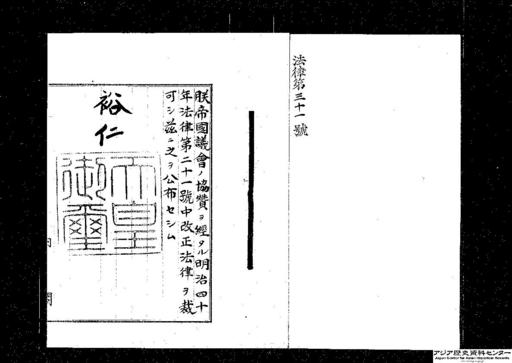 法律第三十一號
朕帝國議會ノ協贊ヲ經タル明治四十
年法律第二十一號中改正法律ヲ裁
可シ茲ニ之ヲ公布セシム
裕仁
天皇
御璽
アジア歴史資料センター
Japan Center for Asian Historical Records